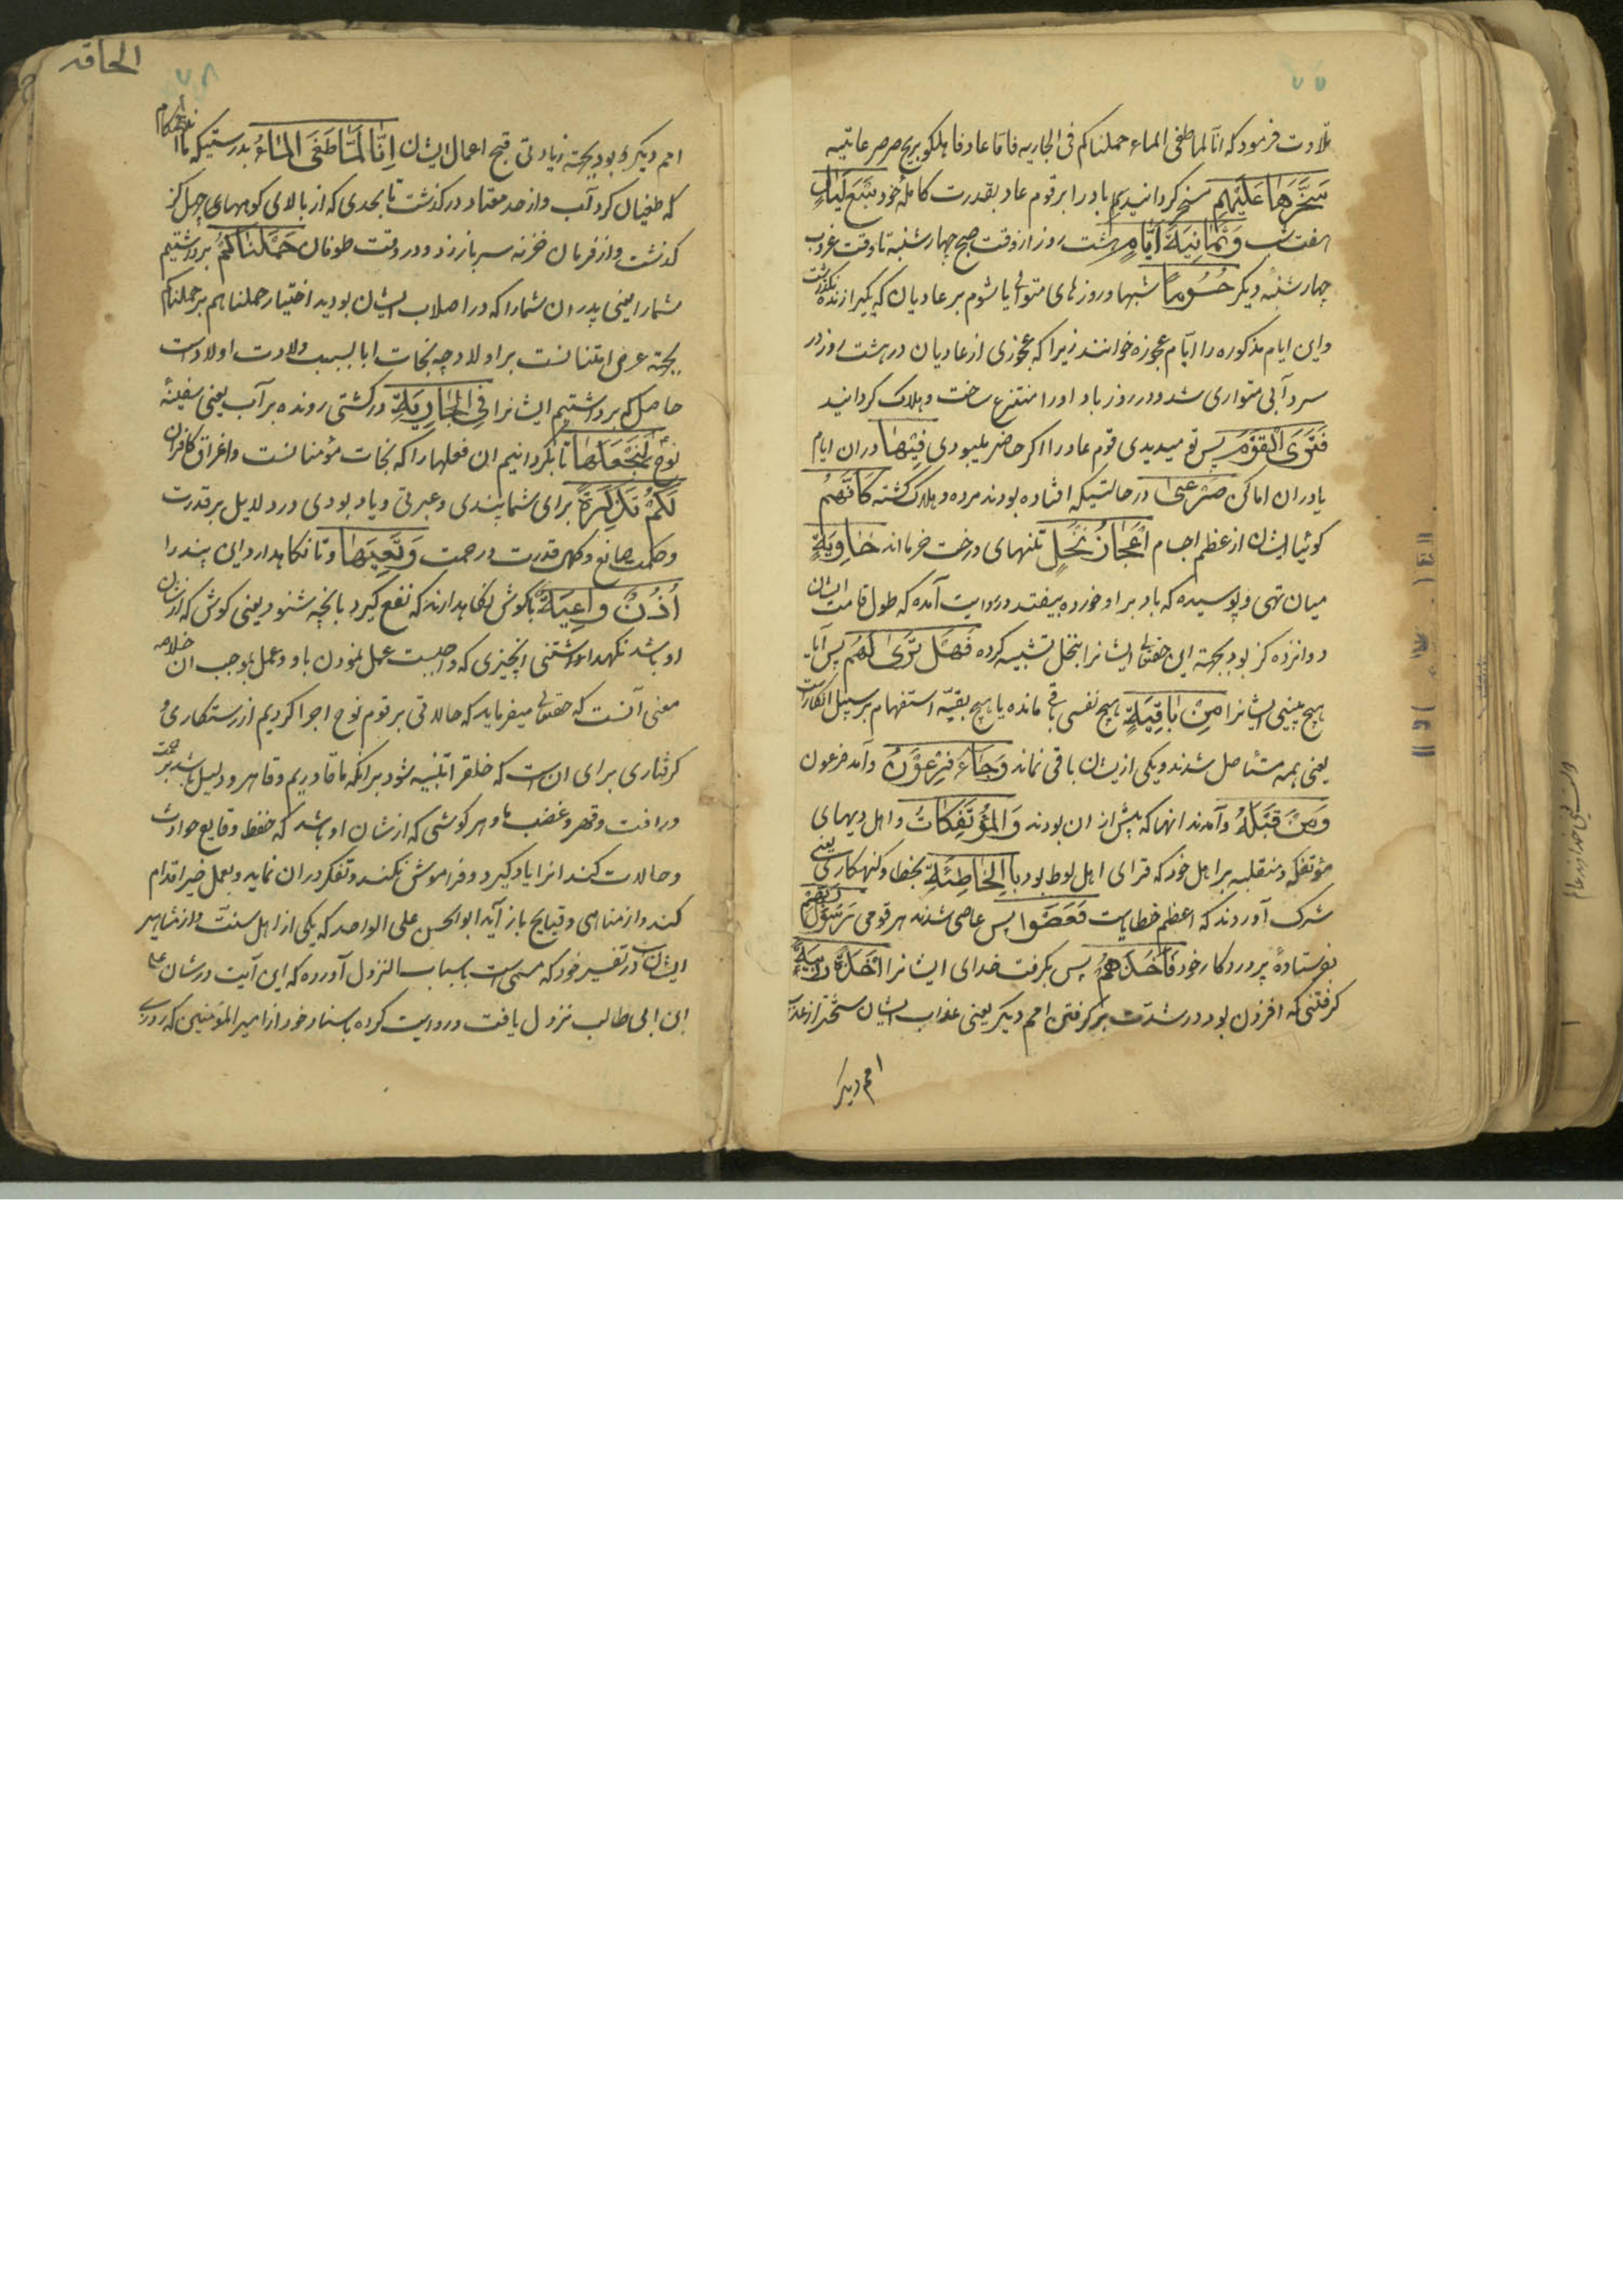 تلاوت فرمود که انا لما طغی الماء حملناکم فی الجاریه فاما عاد فاهلکو بریح صرصر عاتیه
سَخَّرَهَا عَلَيْهِم مسخر کردانیدیم باد را بر قوم عاد بقدرت کامله خود سَبْعَ لَيَالٍ
هفت شب وَثَمَانِيَةَ أَيَّامٍ هشت روز از وقت صبح چهارشنبه تا وقت غروب
چهارشنبه دیکر حُسُومًا شبها و روزهای متوالی یا شوم بر عادیان که یکیرا زنده نکذاشت
واین ایام مذکوره را ایام عجوزه خوانند زیرا که عجوزی از عادیان در هشت روز در
سردآبی متواری شد ودر روز باد اورا منتزع ساخت وهلاک کردانید
فَتَرَى الْقَوْمَ پس تو میدیدی قوم عاد را اکر حاضر میبودی فِيهَا در ان ایام
یا در ان اماکن صَرْعَىٰ در حالتیکه افتاده بودند مرده وهلاک کشته كَأَنَّهُمْ
کوئیا ایشان از عظم اجسام أَعْجَازُ نَخْلٍ تنهای درخت خرمااند خَاوِيَةٍ
میان تهی وپوسیده که باد بر او خورده بیفتد در روایت آمده که طول قامت ایشان
دوانزده کز بود بجهته این حقتعالی ایشانرا بنخل تشبیه کرده فَهَلْ تَرَىٰ لَهُم پس آیا
هیچ میبینی ایشانرا مِن بَاقِيَةٍ هیچ نفسی باقی مانده یا هیچ بقیه استفهام بر سبیل انکارست
یعنی همه مستاصل شدند ویکی از ایشان باقی نماند وَجَاءَ فِرْعَوْنُ وآمد فرعون
وَمَن قَبْلَهُ وآمدند انها که پیش از ان بودند وَالْمُؤْتَفِكَاتُ واهل دیههای
مؤتفکه ومنقلبه بر اهل خود که قرای اهل لوط بود بِالْخَاطِئَةِ بخطا وکنهکاری یعنی
شرک آوردند که اعظم خطایاست فَعَصَوْا پس عاصی شدند هر قومی رَسُولَ رَبِّهِمْ
بفرستادهٔ پروردکار خود فَأَخَذَهُمْ پس بکرفت خدای ایشانرا أَخْذَةً رَّابِيَةً
کرفتنی که افزون بود در شدت بر کرفتن امم دیکر یعنی عذاب ایشان سختتر از عذاب
امم دیکر
الحاقه
امم دیکر بود بجهته زیادتی قبح اعمال ایشان إِنَّا لَمَّا طَغَى الْمَاءُ بدرستیکه ما
که طغیان کرد آب واز حد معتاد درکذشت تا بحدی که از بالای کوههای چهل کز
کذشت واز فرمان خزنه سر باز زد ودر وقت طوفان حَمَلْنَاكُمْ برداشتیم
شمارا یعنی پدران شمارا که در اصلاب ایشان بودید اختیار حملناهم بر حملناکم
بجهته عرض امتنانست بر اولاد چه نجات ابا بسبب ولادت اولادست
حاصل که برداشتیم ایشانرا فِي الْجَارِيَةِ در کشتی رونده بر آب یعنی سفینهٔ
نوح لِنَجْعَلَهَا تا بکردانیم ان فعلها را که نجات مؤمنانست واغراق کافران
لَكُمْ تَذْكِرَةً برای شما پندی وعبرتی ویاد بودی ودر دلایل بر قدرت
وحکمت صانع وکمال قدرت ورحمت وَتَعِيَهَا وتا نکاهدارد این پند را
أُذُنٌ وَاعِيَةٌ کوش نکاهدارنده که نفع کیرد بانچه شنود یعنی کوش که از شان
او باشد نکهداشتنی انچیزی که واجبست عمل نمودن باو وعمل بموجب ان خلاصه
معنی آنست که حقتعالی میفرماید که حالاتی بر قوم نوح اجرا کردیم از رستکاری و
کرفتاری برای ان است که خلق را تنبیه شود برانکه ما قادریم وقاهر ودلیل باشد بر رحمت
ورافت وقهر وغضب ما وهر کوشی که از شان او باشد که حفظ وقایع حوادث
وحالات کند انرا یاد کیرد وفراموش نکند وتفکر دران نماید وبعمل خیر اقدام
کند واز مناهی وقبایح باز آید ابوالحسن علی الواحد که یکی از اهل سنت واز مشاهیر
ایشان است در تفسیر خود که مسمی است باسباب النزول آورده که این آیت در شان علی
ابن ابی طالب نزول یافت وروایت کرده باسناد خود از امیرالمؤمنین که روزی